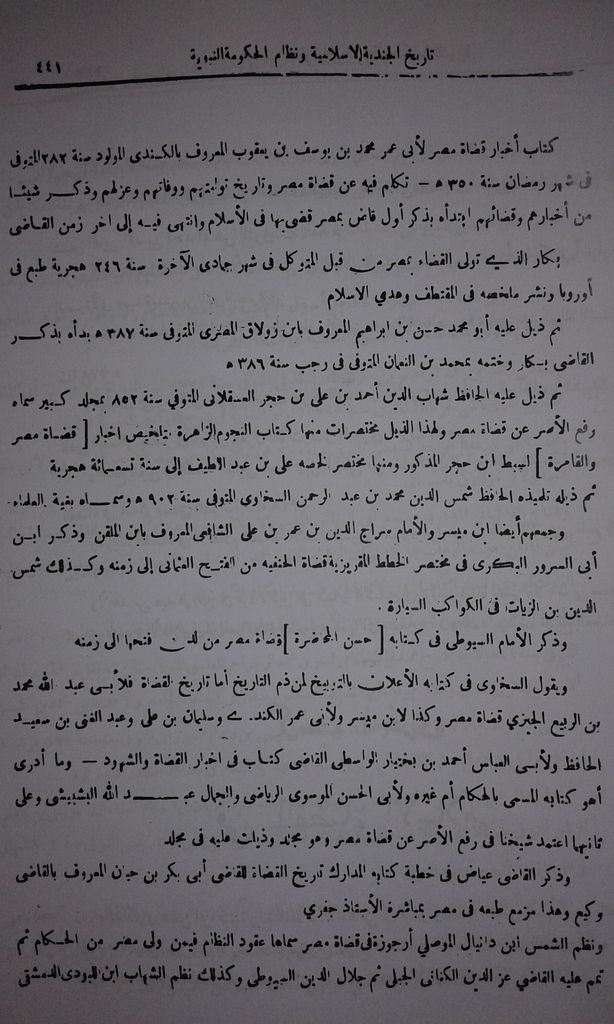 تاريخ الجندية الاسلامية ونظام الحكومة النبوية
٤٤١
كتاب أخبار قضاة مصر لأبى عمر محمد بن يوسف بن يعقوب المعروف بالكندى المولود سنة ٢٨٢ المتوفى
فى شهر رمضان سنة ٣٥٠ ه — تكلم فيه عن قضاة مصر وتاريخ توليتهم ووفاتهم وعزلهم وذكر شيئا
من أخبارهم وقضائهم ابتدأه بذكر أول قاض بمصر قضى بها فى الأسلام وانتهى فيه إلى اخر زمن القاضى
بكار الذي تولى القضاء بمصر من قبل المتوكل فى شهر جمادى الآخرة سنة ٢٤٦ هجرية طبع فى
أوروبا ونشر ملخصه فى المقتطف وهدي الاسلام
ثم ذيل عليه أبو محمد حسن بن ابراهيم المعروف بابن زولاق المصرى المتوفى سنة ٣٨٧ بدأه بذكر
القاضى بكار وختمه بمحمد بن النعمان المتوفى فى رجب سنة ٣٨٦ ه
ثم ذيل عليه الحافظ شهاب الدين أحمد بن على بن حجر العسقلانى المتوفي سنة ٨٥٢ بمجلد كبير سماه
رفع الأصر عن قضاة مصر ولهذا الذيل مختصرات منها كتاب النجوم الزاهرة بتلخيص اخبار [ قضاة مصر
والقاهرة ] لسبط ابن حجر المذكور ومنها مختصر لخصه على بن عبد اللطيف إلى سنة تسعمائة هجرية
ثم ذيله تلميذه الحافظ شمس الدين محمد بن عبد الرحمن السخاوى المتوفى سنة ٩٠٢ ه وسماه بغية العلماء
وجمعهم أيضا ابن ميسر والأمام سراج الدين بن عمر بن على الشافعى المعروف بابن الملقن وذكر ابن
أبى السرور البكرى فى مختصر الخطط المقريزية قضاة الحنفيه من الفتح العثمانى إلى زمنه وكذلك شمس
الدين بن الزيات فى الكواكب السيارة .
وذكر الأمام السيوطى فى كتابه [ حسن المحاضرة ] قضاة مصر من لدن فتحها الى زمنه
ويقول السخاوى فى كتابه الأعلان بالتوبيخ لمن ذم التاريخ أما تاريخ القضاة فلأبى عبد الله محمد
بن الربيع الجيزي قضاة مصر وكذا لابن ميسر ولأبى عمر الكندى وسليمان بن على وعبد الغنى بن سعيد
الحافظ ولأبى العباس أحمد بن بختيار الواسطى القاضى كتاب فى اخبار القضاة والشهود — وما أدرى
أهو كتابه المسمى بالحكام أم غيره ولأبى الحسن الموسوى الرياضى والجمال عبد الله البشبيشى وعلى
ثانيهما اعتمد شيخنا فى رفع الأصر عن قضاة مصر وهو مجلد وذيلت عليه فى مجلد
وذكر القاضى عياض فى خطبة كتابه المدارك تاريخ القضاة للقاضى أبى بكر بن حيان المعروف بالقاضى
وكيع وهذا مزمع طبعه فى مصر بمباشرة الأستاذ جفري
ونظم الشمس ابن دانيال الموصلي أرجوزة فى قضاة مصر سماها عقود النظام فيمن ولى مصر من الحكام ثم
تمم عليه القاضي عز الدين الكنانى الحنبلى ثم جلال الدين السيوطى وكذلك نظم الشهاب ابن اللبودى الدمشقى